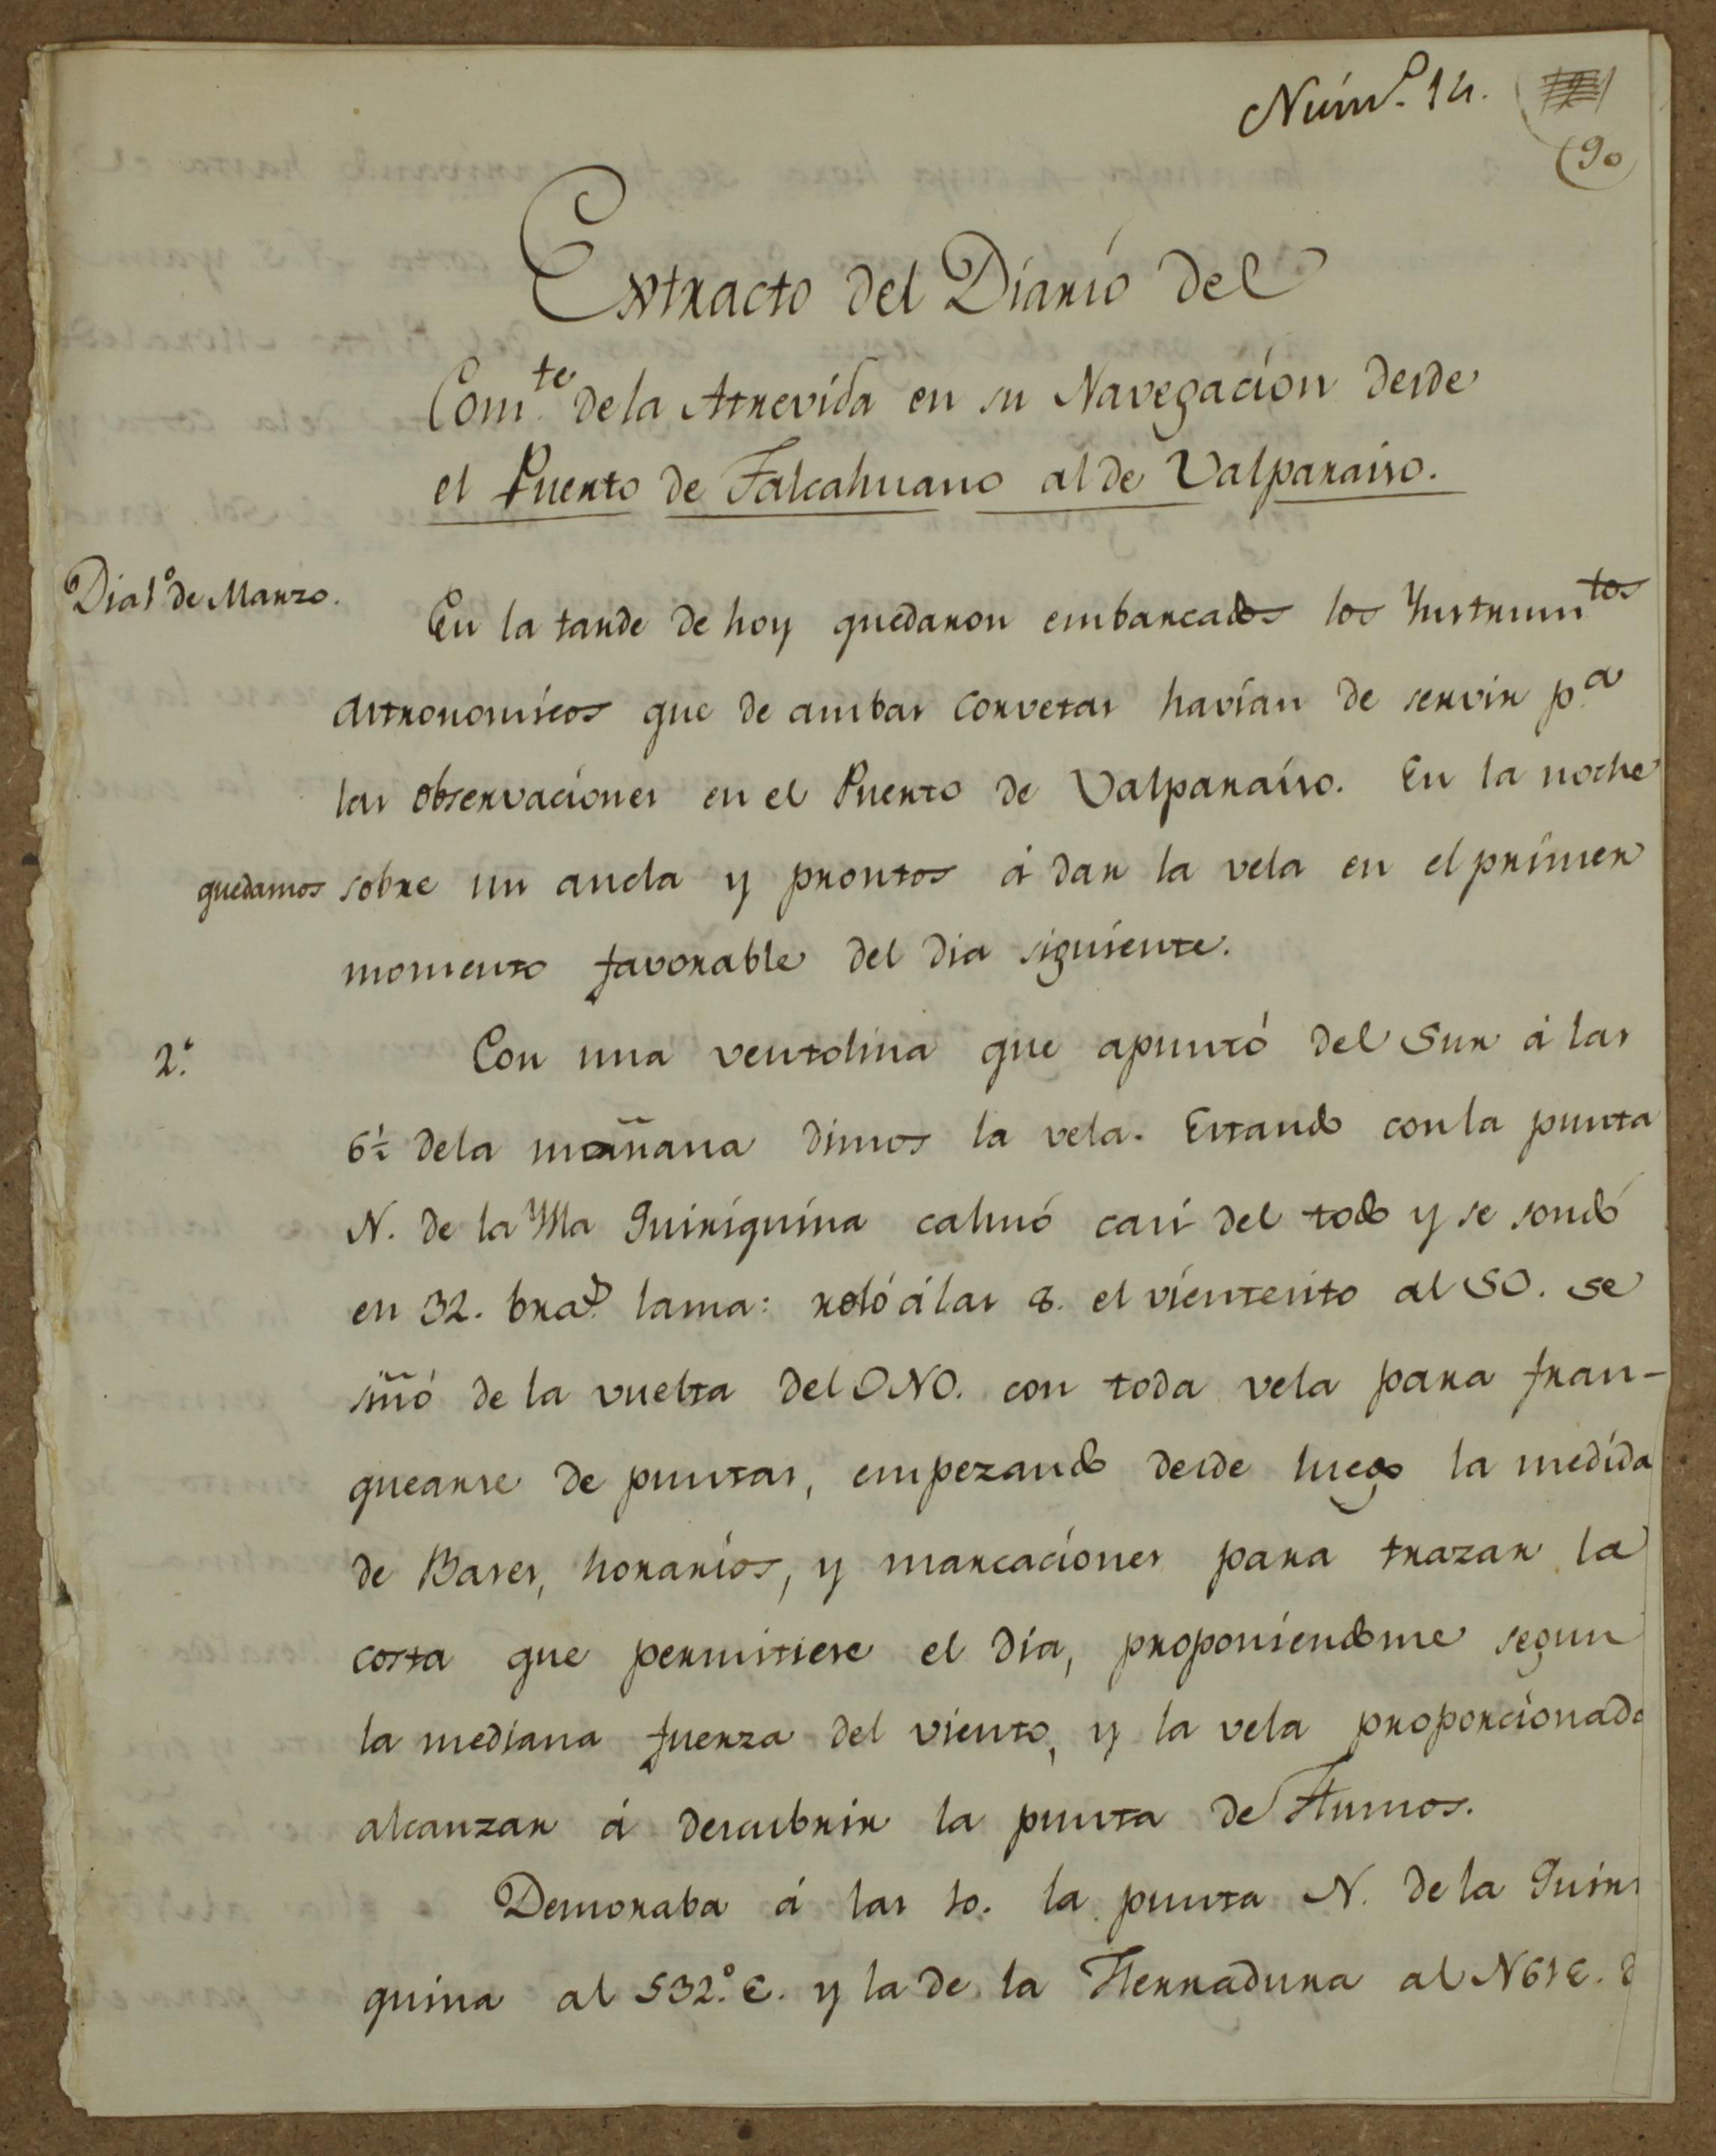 Númº. 14.
(90
Extracto del Diario del
Comte. de la Atrevida en su Navegacion desde
el Puerto de Talcahuano al de Valparaiso.
Dia 1º de Marzo.
En la tarde de hoy quedaron embarcados los Ynstrumtos
Astronomicos que de ambas Corvetas havían de servir pª
las observaciones en el Puerto de Valparaiso. En la noche
quedamos sobre un ancla y prontos á dar la vela en el primer
momento favorable del dia siguiente.
2.º
Con una ventolina que apuntó del Sur á las
6½ de la mañana dimos la vela. Estando con la punta
N. de la Ysla Quiriquina calmó casi del todo y se sondó
en 32. bras. lama: roló á las 8. el vientesito al SO. se
siñó de la vuelta del ONO. con toda vela para fran-
quearse de puntas, empezando desde luego la medida
de Bases, horarios, y marcaciones para trazar la
costa que permitiese el dia, proponiendome segun
la mediana fuerza del viento, y la vela proporcionada
alcanzar á descubrir la punta de Humos.
Demoraba á las 10. la punta N. de la Quiri
quina al S32.º E. y la de la Herradura al N61E.